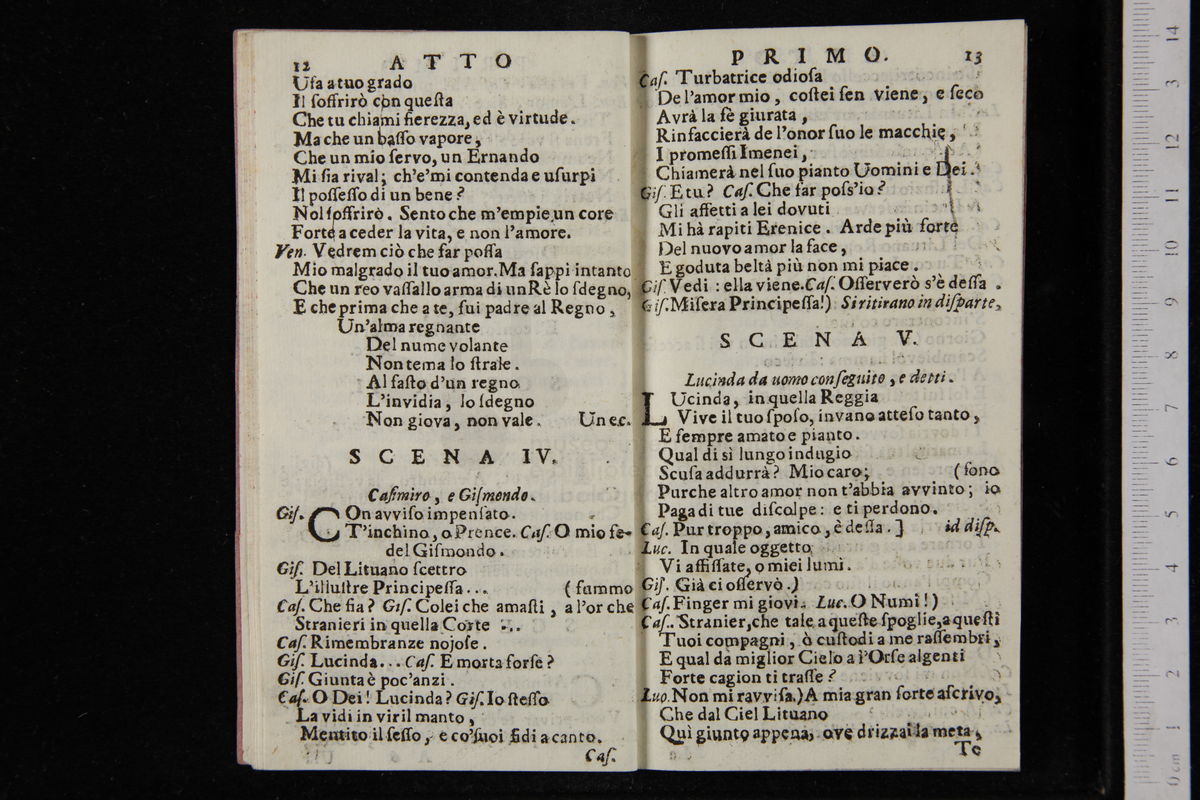 12 ATTO
Uſa a tuo grado
Il ſoffrirò con queſta
Che tu chiami fierezza, ed è virtude.
Ma che un baſſo vapore,
Che un mio ſervo, un Ernando
Mi ſia rival; ch'e'mi contenda e uſurpi
Il poſſeſſo di un bene?
Nol ſoffrirò. Sento che m'empie un core
Forte a ceder la vita, e non l'amore.
Ven. Vedrem ciò che far poſſa
Mio malgrado il tuo amor. Ma ſappi intanto
Che un reo vaſſallo arma di un Rè lo ſdegno,
E che prima che a te, fui padre al Regno,
Un'alma regnante
Del nume volante
Non tema lo ſtrale.
Al faſto d'un regno
L'invidia, lo ſdegno
Non giova, non vale. Un ec.
SCENA IV.
Caſimiro, e Giſmondo.
Giſ. COn avviſo impenſato.
T'inchino, o Prence. Caſ. O mio fe-
del Giſmondo.
Giſ. Del Lituano ſcettro
L'illuſtre Principeſſa... (fummo
Caſ. Che fia? Giſ. Colei che amaſti, a l'or che
Stranieri in quella Corte ...
Caſ. Rimembranze nojoſe.
Giſ. Lucinda... Caſ. E morta forſe?
Giſ. Giunta è poc'anzi.
Caſ. O Dei! Lucinda? Giſ. Io ſteſſo
La vidi in viril manto,
Mentito il ſeſſo, e co'ſuoi fidi a canto.
Caſ.
PRIMO. 13
Caſ. Turbatrice odioſa
De l'amor mio, coſtei ſen viene, e ſeco
Avrà la fè giurata,
Rinfaccierà de l'onor ſuo le macchie,
I promeſſi Imenei,
Chiamerà nel ſuo pianto Uomini e Dei.
Giſ. E tu? Caſ. Che far poſs'io?
Gli affetti a lei dovuti
Mi hà rapiti Erenice. Arde più forte
Del nuovo amor la face,
E goduta beltà più non mi piace.
Giſ. Vedi: ella viene. Caſ. Oſſerverò s'è deſſa.
Giſ. Miſera Principeſſa!) Si ritirano in diſparte,
SCENA V.
Lucinda da uomo conſeguito, e detti.
LUcinda, in quella Reggia
Vive il tuo ſpoſo, invano atteſo tanto,
E ſempre amato e pianto.
Qual di sì lungo indugio
Scuſa addurrà? Mio caro; (ſono
Purche altro amor non t'abbia avvinto; io
Paga di tue diſcolpe: e ti perdono.
Caſ. Pur troppo, amico, è deſſa.] id diſp.
Luc. In quale oggetto
Vi affiſſate, o miei lumi.
Giſ. Già ci oſſervò.)
Caſ. Finger mi giovi. Luc. O Numi!)
Caſ. Stranier, che tale a queſte ſpoglie, a queſti
Tuoi compagni, ò cuſtodi a me raſſembri,
E qual da miglior Cielo a l'Orſe algenti
Forte cagion ti traſſe?
Luo. Non mi ravviſa.) A mia gran ſorte aſcrivo,
Che dal Ciel Lituano
Quì giunto appena, ove drizzai la meta,
Te